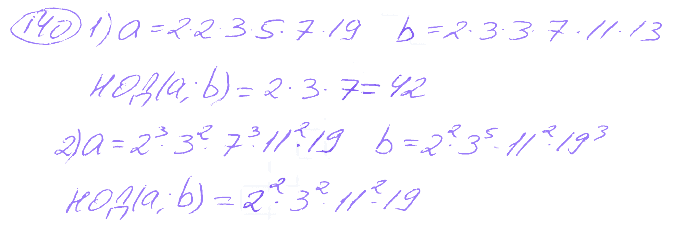 140 1) a = 2·2·3·5·7·19 b = 2·3·3·7·11·13
НОД(a; b) = 2·3·7 = 42
2) a = 2³·3²·7³·11²·19 b = 2²·3⁵·11²·19³
НОД(a; b) = 2²·3²·11²·19